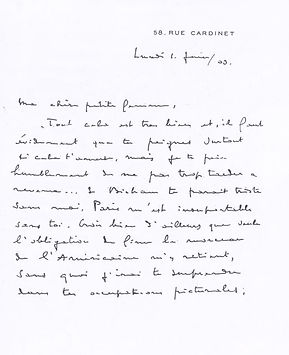 58, RUE CARDINET
Lundi 1. Juin/03.
Ma chère petite femme,
Tout cela est très bien et, il faut
évidemment que tu peignes surtout
si cela t'amuse, mais je te prie
humblement de ne pas trop tarder à
revenir... Si Bichain te paraît triste
sans moi, Paris m'est insupportable
sans toi. Crois bien d'ailleurs que seule
l'obligation de finir le morceau
de l'Américaine m'y retient,
sans quoi j'irai te surprendre
dans tes occupations picturales;